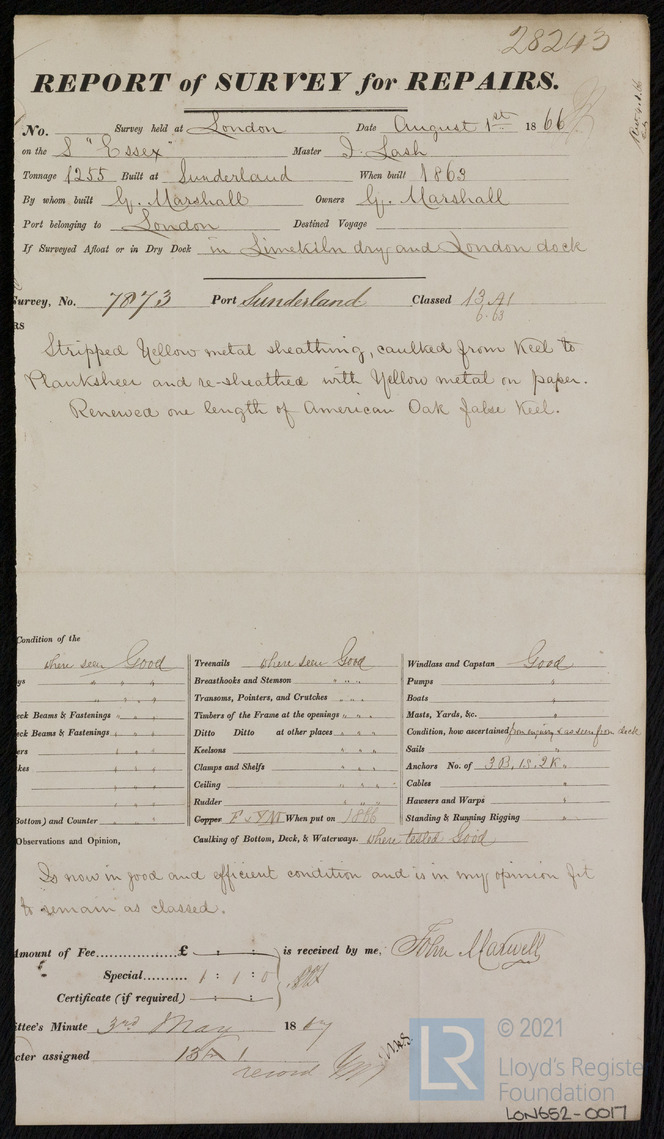 28243
REPORT of SURVEY for REPAIRS.
No. Survey held at London Date August 1st 1866
on the S "Essex" Master I. Lash
Tonnage 1255 Built at Sunderland When built 1863
By whom built G. Marshall Owners G. Marshall
Port belonging to London Destined Voyage
If Surveyed Afloat or in Dry Dock in Limekiln dry and London dock
Survey, No. 7873 Port Sunderland Classed 13 A1
6.63
RS
Stripped Yellow metal sheathing, caulked from Keel to
Planksheer and re-sheathed with Yellow metal on paper.
Renewed one length of American Oak false Keel.
Condition of the
where seen Good Treenails where seen Good Windlass and Capstan Good "
ys " " " Breasthooks and Stemson " " " Pumps "
" " " Transoms, Pointers, and Crutches " " " Boats "
eck Beams & Fastenings " " " Timbers of the Frame at the openings " " " Masts, Yards, &c. "
eck Beams & Fastenings " " " Ditto Ditto at other places " " " Condition, how ascertained from enquiry & as seen from deck
ers " " " Keelsons " " " Sails "
kes " " " Clamps and Shelfs " " " Anchors No. of 3 B, 1 S, 2 K "
" " " Ceiling " " " Cables "
" " " Rudder " " " Hawsers and Warps "
Bottom) and Counter " " " Copper F & YM When put on 1866 Standing & Running Rigging "
Observations and Opinion, Caulking of Bottom, Deck, & Waterways. where tested Good
Is now in good and efficient condition and is in my opinion fit
to remain as classed.
Amount of Fee..................£ : : is received by me, John Maxwell
Special.......... 1 : 1 : 0
Certificate (if required) : :
ittee's Minute 3rd May 1867
cter assigned 13 A 1
record
© 2021
LR
Lloyd's Register
Foundation
LON652-0017